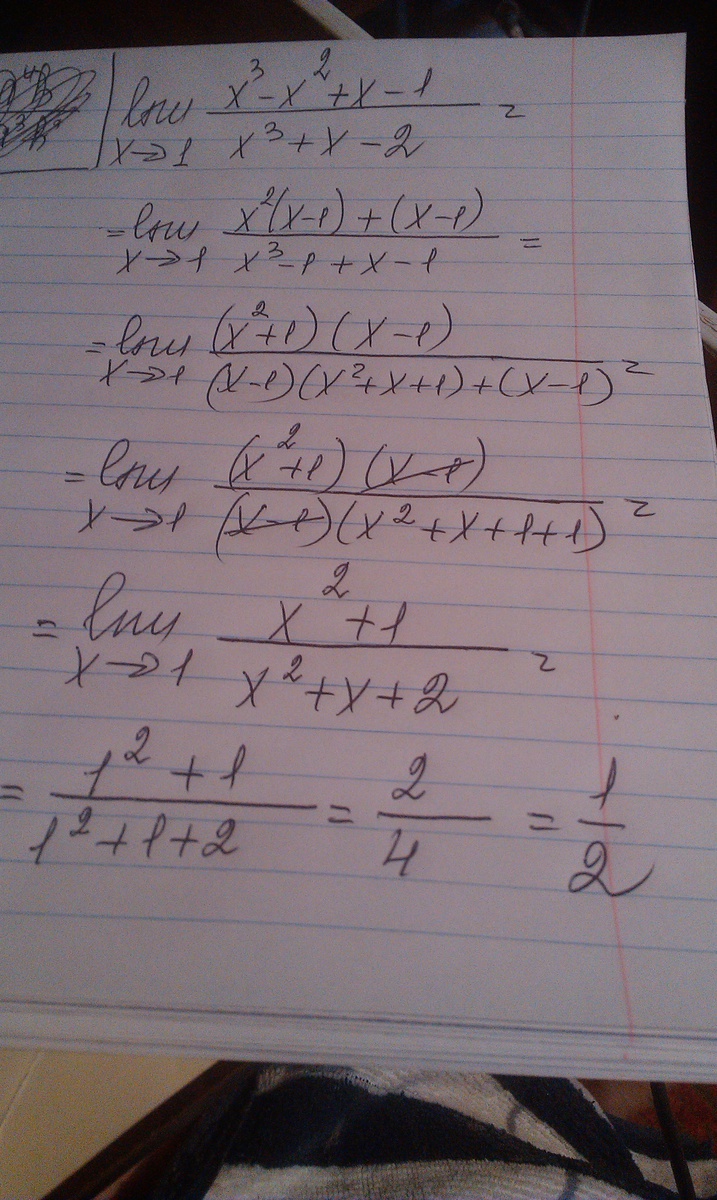 lim x→1 (x³ - x² + x - 1)/(x³ + x - 2) =
= lim x→1 (x²(x-1) + (x-1))/(x³ - 1 + x - 1) =
= lim x→1 ((x² + 1)(x-1))/((x-1)(x² + x + 1) + (x-1)) =
= lim x→1 ((x² + 1)(x-1))/((x-1)(x² + x + 1 + 1)) =
= lim x→1 (x² + 1)/(x² + x + 2) =
= (1² + 1)/(1² + 1 + 2) = 2/4 = 1/2